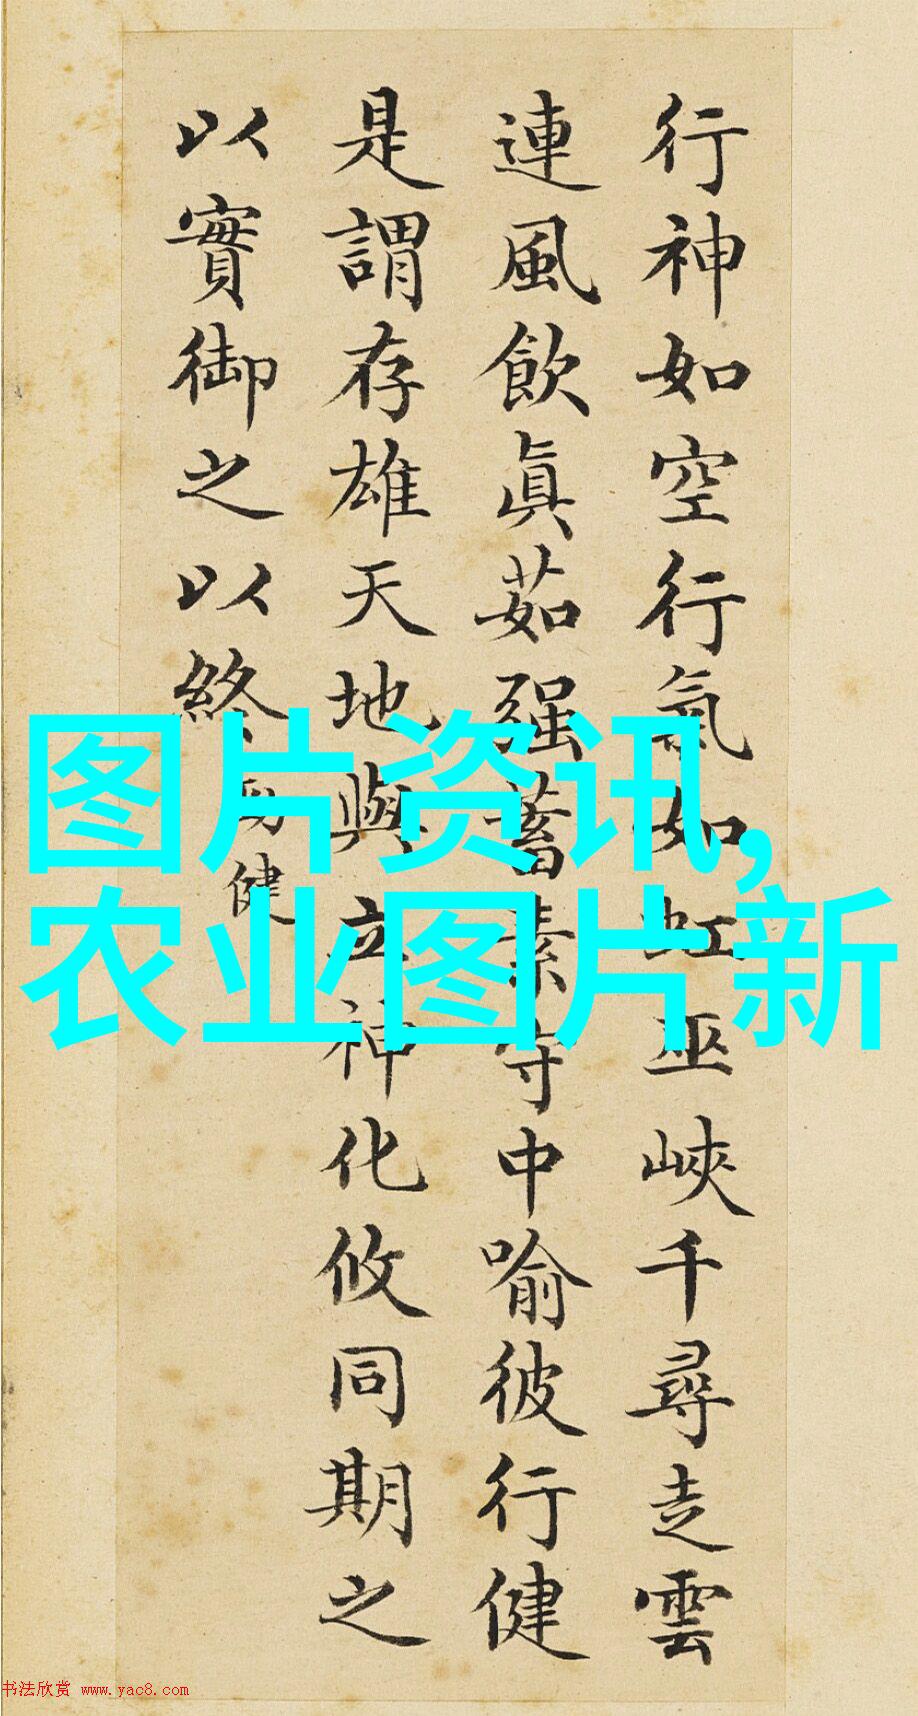 行神如空行氣如虹巫峽千尋走雲
連風飲眞茹强蓄素守中喻彼行健
是謂存雄天地與立神化攸同期之
以實御之以終
勁健
图片资讯,
农业图片新
书法欣赏 www.yac8.com